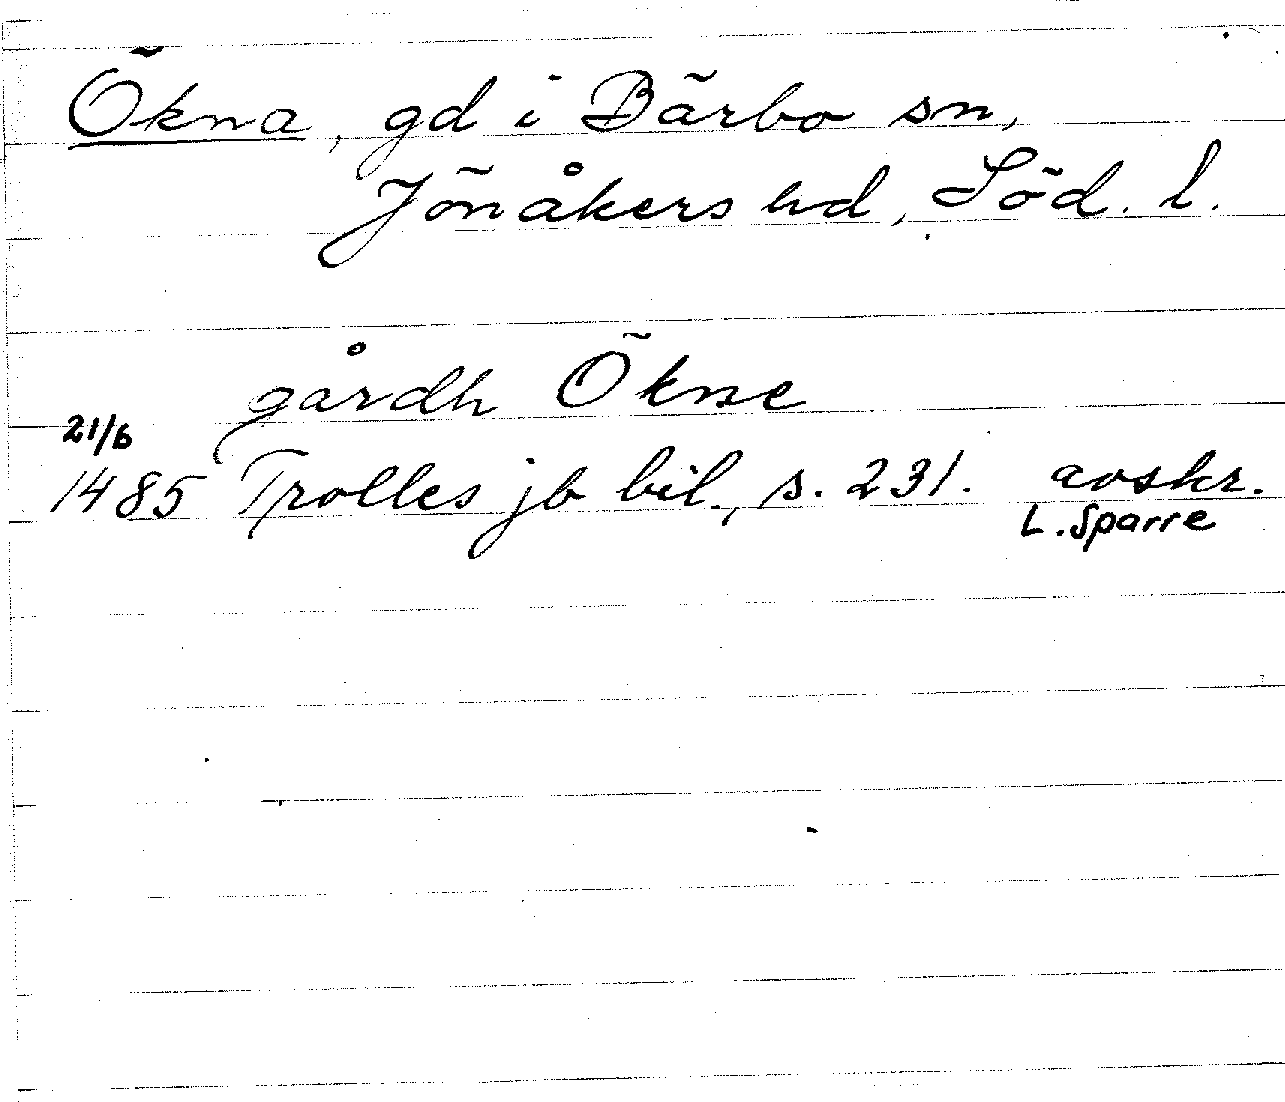 Ökna, gd i Bärbo sn,
Jönåkers hd, Söd. l.
gårdh Ökne
21/6
1485 Trolles jb bil., s. 231. avskr.
L. Sparre